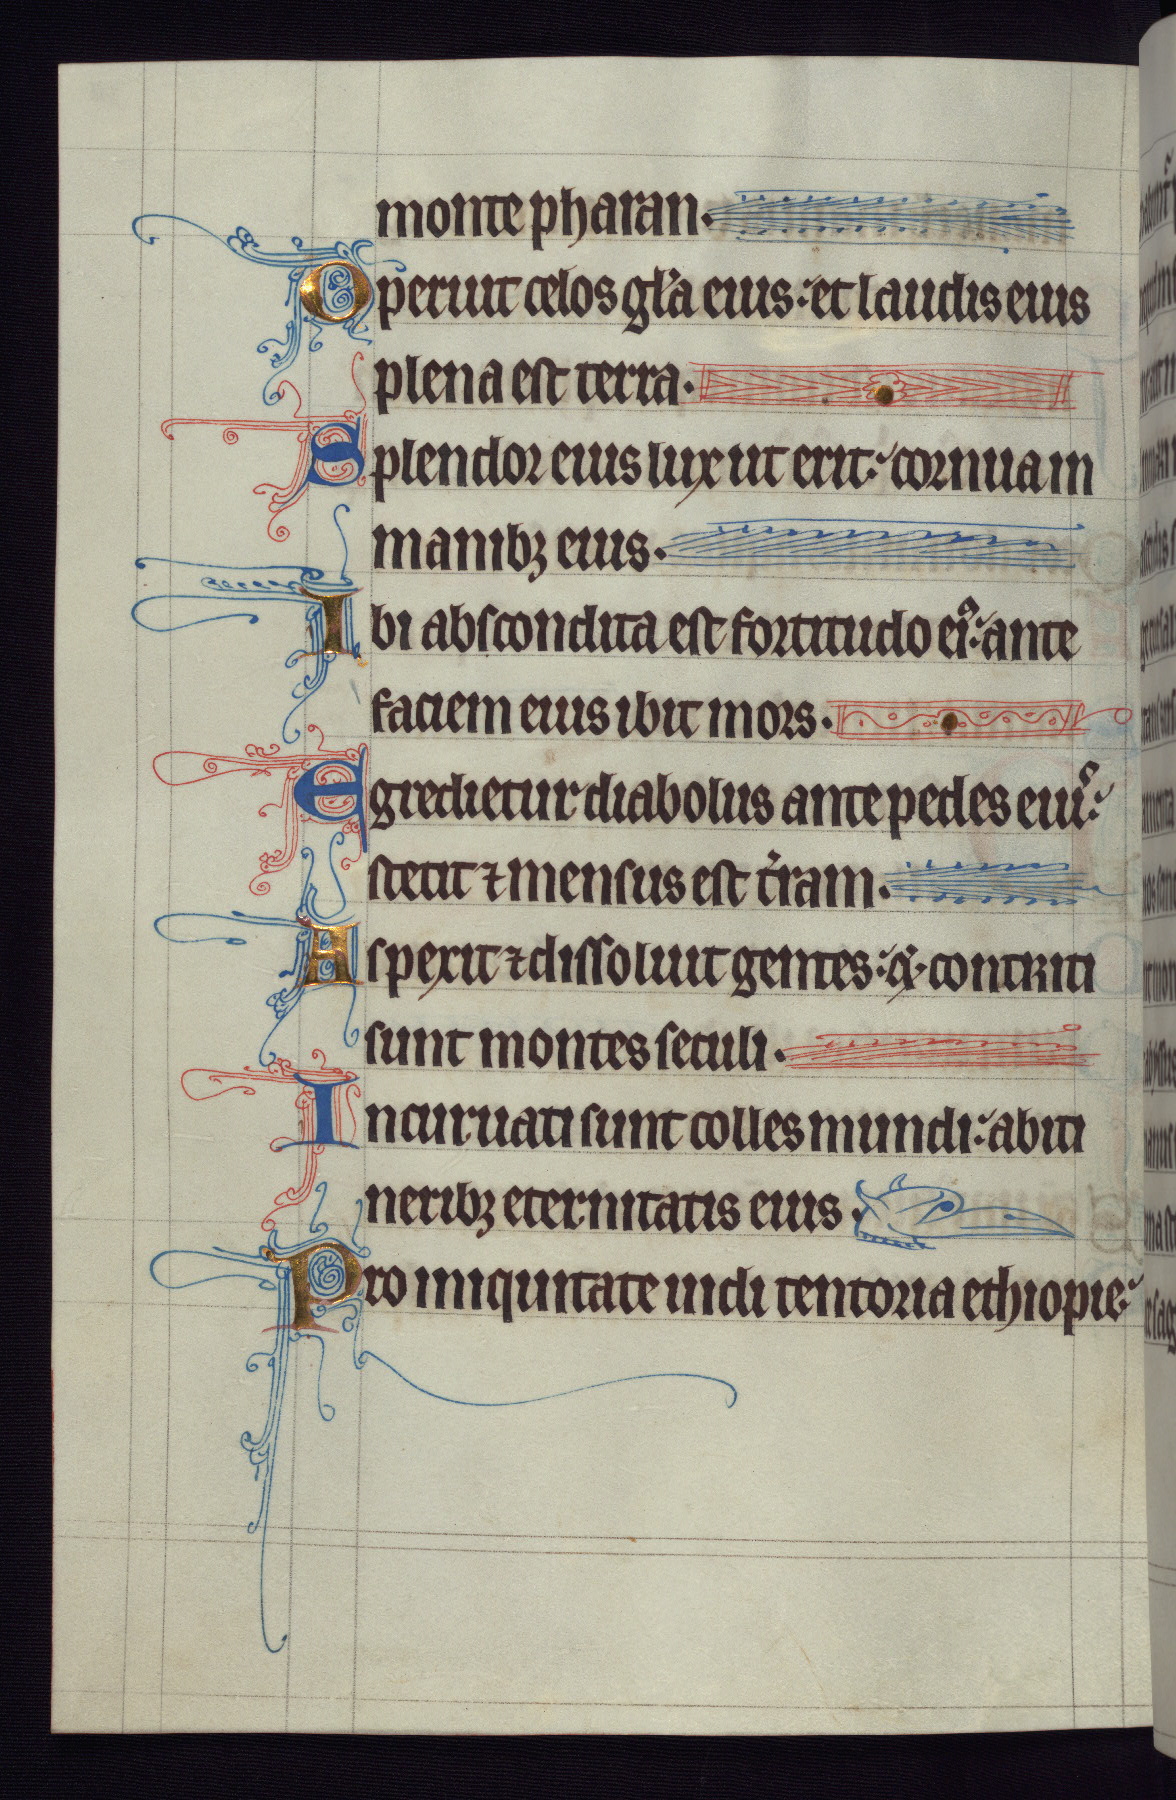 monte pharan.
Operuit celos gl'a eius : et laudis eius
plena est terra.
Splendor eius lux ut erit : cornua in
manibꝫ eius.
Ibi abscondita est fortitudo ei⁹ : ante
faciem eius ibit mors.
Egredietur diabolus ante pedes eiu᷒ :
stetit ⁊ mensus est t'ram.
Aspexit ⁊ dissoluit gentes : ⁊ contriti
sunt montes seculi.
Incuruati sunt colles mundi : ab iti
neribꝫ eternitatis eius.
Pro iniquitate uidi tentoria ethiopie :